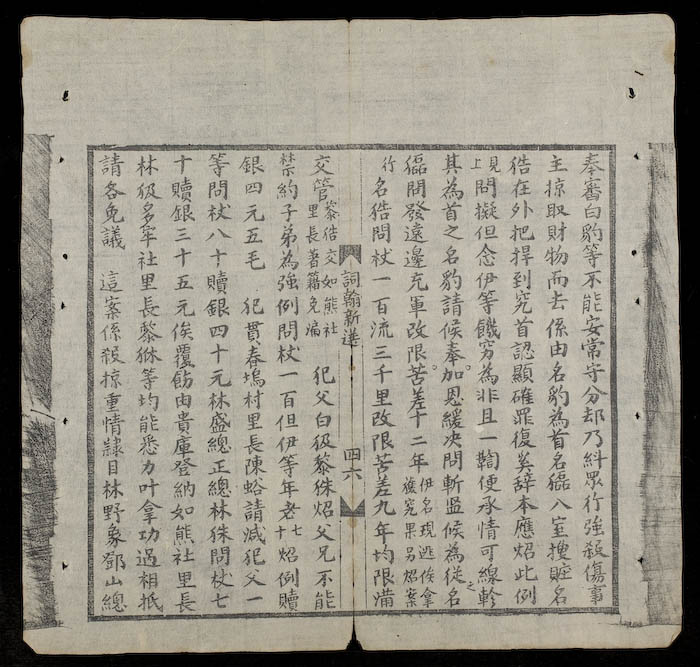 奉審白豹等不能安常守分却乃糾眾行強殺傷事
主掠取財物而去係由名豹為首名貓入室搜賍名
㹰在外把捍到究首認顯確罪復奚辞本應炤此例
見上問擬但念伊等饑窮為非且一鞫便承情可線軫之
其為首之名豹請候奉加恩緩决問斬監候為從名
貓問發遠邊充軍改限苦差十二年伊名現逃俟拿獲究果另炤案
行名㹰問杖一百流三千里改限苦差九年均限滿
交管黎㹰交如熊社里長著籍免漏 犯父白级黎㹥炤父兄不能
禁約子弟為強例問杖一百但伊等年老七十炤例贖
銀四元五毛 犯貫春塢村里長陳蛒請减犯父一
等問杖八十贖銀四十元林盛總正總林㹥問杖七
十贖銀三十五元俟覆飭由貴庫登納如熊社里長
林级多宰社里長黎㹯等均能悉力叶拿功過相抵
請各免議 這案係殺掠重情隷目林野象鄧山總
詞翰新選
四六